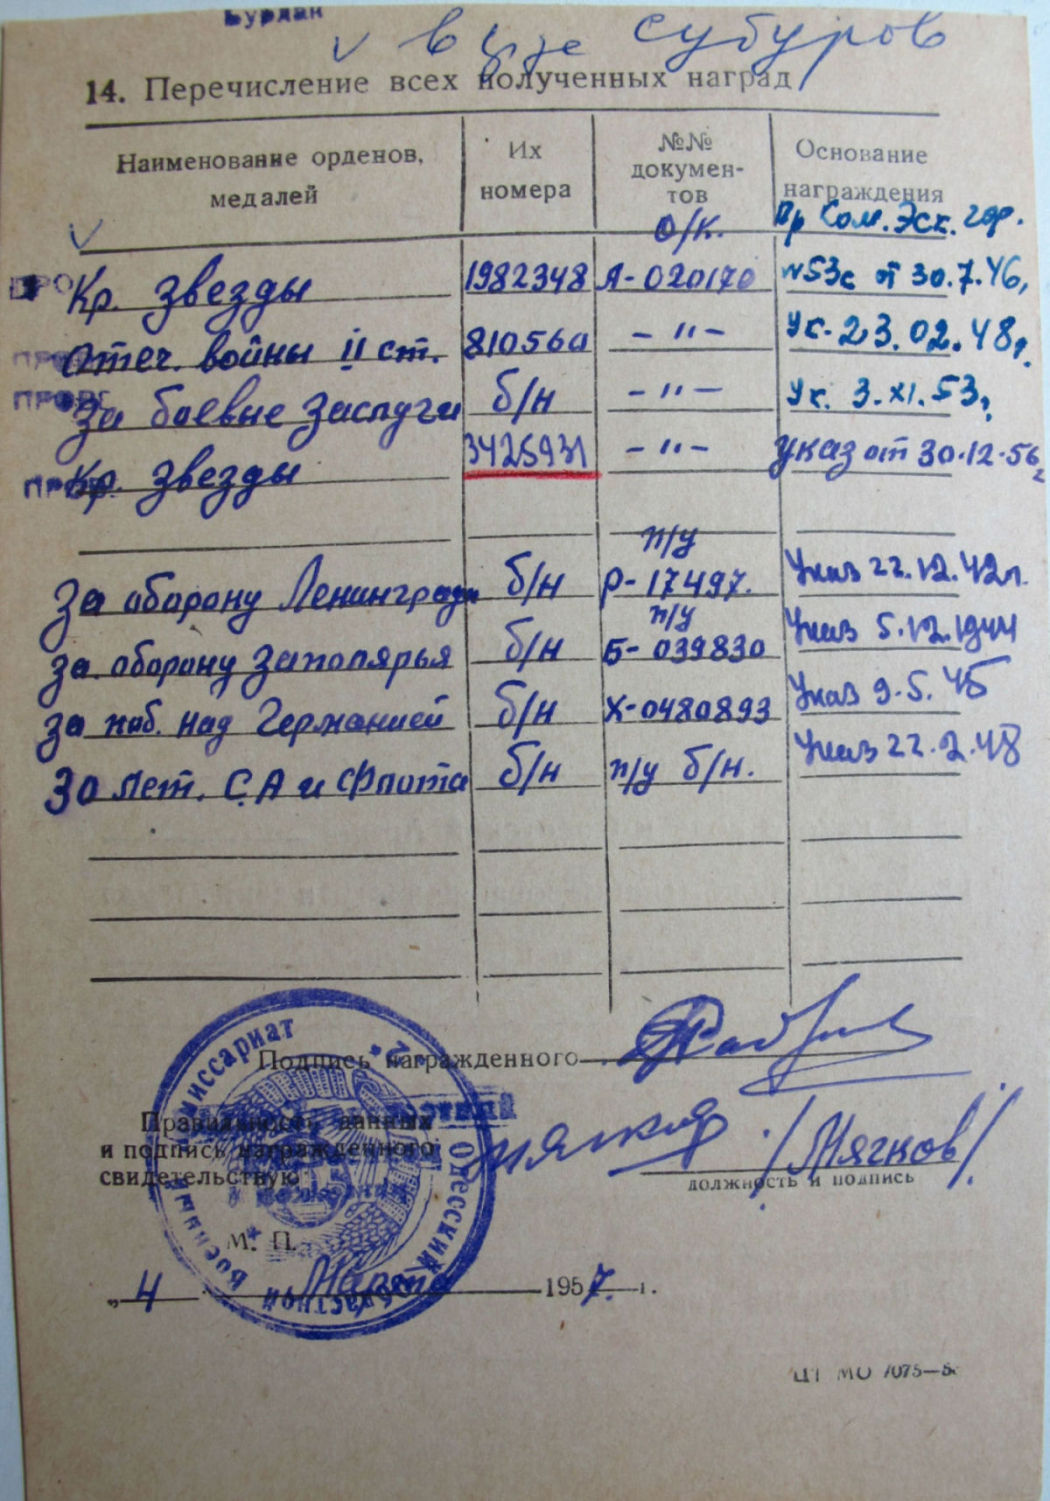 Бурлак
14. Перечисление всех полученных наград
Наименование орденов, медалей
Их номера
№№ документов
Основание награждения
О/К. Пр Ком. Эск. гор.
Кр. Звезды 1982348 А-020170 №53с от 30.7.46г
Отеч. войны II ст. 810560 -"- Ук. 23.02.48г.
За боевые заслуги б/н -"- Ук. 3.XI.53г
Кр. Звезды 3425931 -"- Указ от 30.12.56г
п/у
За оборону Ленинграда б/н Р-17497. Указ 22.12.42г.
п/у
За оборону Заполярья б/н Б-039830 Указ 5.12.1944
За поб. над Германией б/н Х-0480893 Указ 9.5.45
30 лет. С.А и Флота б/н п/у б/н. Указ 22.2.48
Подпись награжденного
Правильность данных
и подпись награжденного
свидетельствую
/Мягков/
должность и подпись
М. П.
Одесский Областной Военный Комиссариат
„4 Марта 1957. г.
ЦТ МО 7075—5